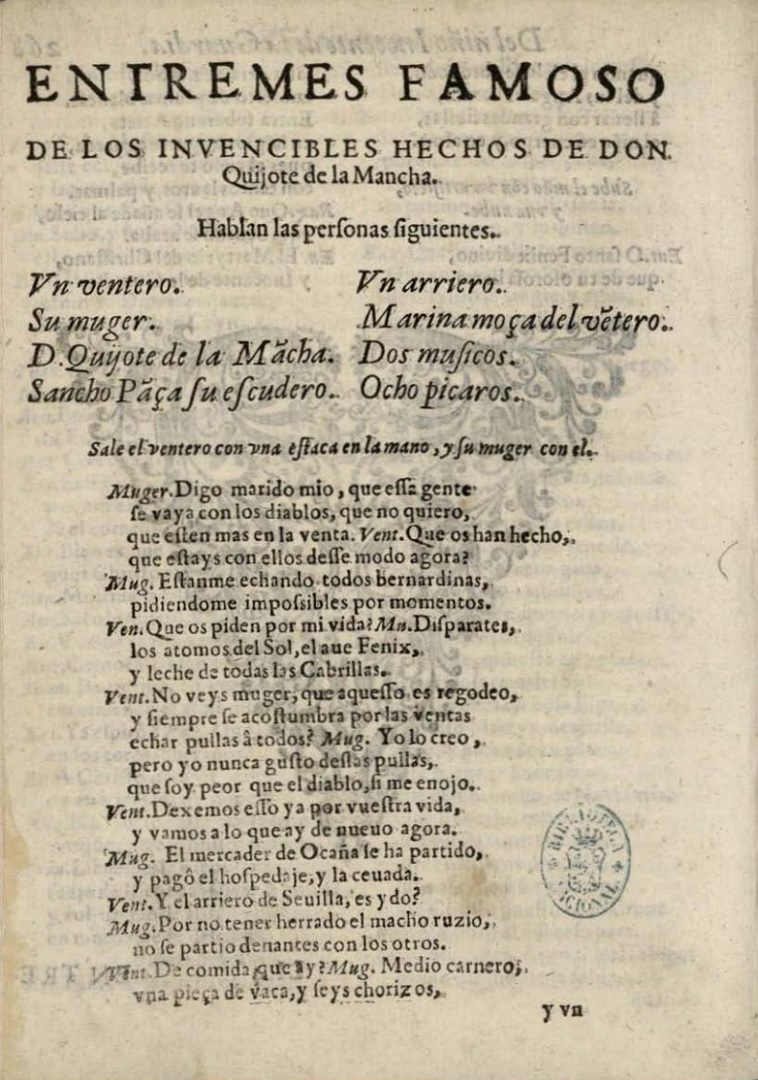 ENTREMES FAMOSO
DE LOS INVENCIBLES HECHOS DE DON
Quijote de la Mancha.
Hablan las perſonas ſiguientes.
Vn ventero.
Su muger.
D. Quijote de la Mācha.
Sancho Pāça ſu eſcudero.
Vn arriero.
Marina moça del vētero.
Dos muſicos.
Ocho picaros.
Sale el ventero con vna eſtaca en la mano, y ſu muger con el.
Muger. Digo marido mio, que eſſa gente
ſe vaya con los diablos, que no quiero,
que eſten mas en la venta. Vent. Que os han hecho,
que eſtays con ellos deſſe modo agora?
Mug. Eſtanme echando todos bernardinas,
pidiendome impoſsibles por momentos.
Ven. Que os piden por mi vida? Mu. Diſparates,
los atomos del Sol, el aue Fenix,
y leche de todas las Cabrillas.
Vent. No veys muger, que aqueſſo es regodeo,
y ſiempre ſe acoſtumbra por las ventas
echar pullas â todos? Mug. Yo lo creo,
pero yo nunca guſto deſtas pullas,
que ſoy peor que el diablo, ſi me enojo.
Vent. Dexemos eſſo ya por vueſtra vida,
y vamos a lo que ay de nueuo agora.
Mug. El mercader de Ocaña ſe ha partido,
y pagô el hoſpedaje, y la ceuada.
Vent. Y el arriero de Seuilla, es ydo?
Mug. Por no tener herrado el macho ruzio,
no ſe partio denantes con los otros.
Vent. De comida que ay? Mug. Medio carnero,
vna pieça de vaca, y ſeys chorizos,
y vn
BIBLIOTECA
NACIONAL